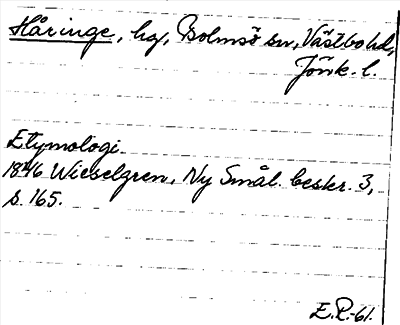 Håringe, hg, Bolmsö sn, Västbo hd,
Jönk. l.
Etymologi
1846 Wieselgren, Ny Smål. beskr. 3,
s. 165.
E.P.-61.